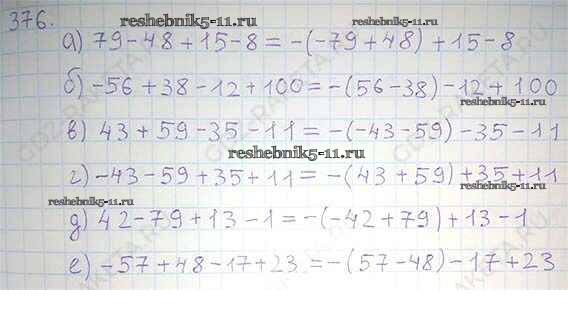 reshebnik5-11.ru
reshebnik5-11.ru
376.
а) 79-48+15-8=-(-79+48)+15-8
б) -56+38-12+100=-(56-38)-12+100
reshebnik5-11.ru
в) 43+59-35-11=-(-43-59)-35-11
reshebnik5-11.ru
г) -43-59+35+11=-(43+59)+35+11
reshebnik5-11.ru
reshebnik5-11.ru
д) 42-79+13-1=-(-42+79)+13-1
е) -57+48-17+23=-(57-48)-17+23